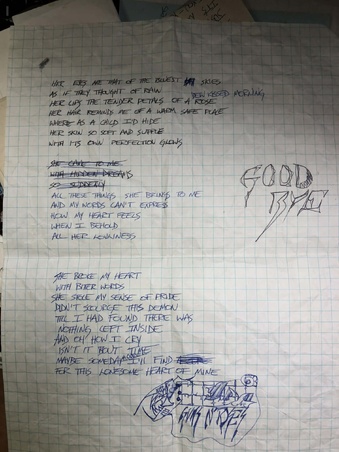 HER EYES ARE THAT OF THE BLUEST SKIES
AS IF THEY THOUGHT OF RAIN
HER LIPS THE TENDER PETALS OF A ROSE DEW KISSED MORNING
HER HAIR REMINDS ME OF A WARM SAFE PLACE
WHERE AS A CHILD I'D HIDE
HER SKIN SO SOFT AND SUPPLE
WITH ITS OWN PERFECTION GLOWS
SHE CAME TO ME
WITH HIDDEN DREAMS
SO SUDDENLY
ALL THESE THINGS SHE BRINGS TO ME
AND MY WORDS CAN'T EXPRESS
HOW MY HEART FEELS
WHEN I BEHOLD
ALL HER
GOOD
BYE
SHE BROKE MY HEART
WITH BITTER WORDS
SHE STOLE MY SENSE OF PRIDE
DIDN'T SCOURGE THIS DEMON
TIL I HAD FOUND THERE WAS
NOTHING LEFT INSIDE
AND OH HOW I CRY
ISN'T IT 'BOUT TIME
MAYBE SOMEDAY I'LL FIND
FOR THIS LONESOME HEART OF MINE
GUNS N' ROSES